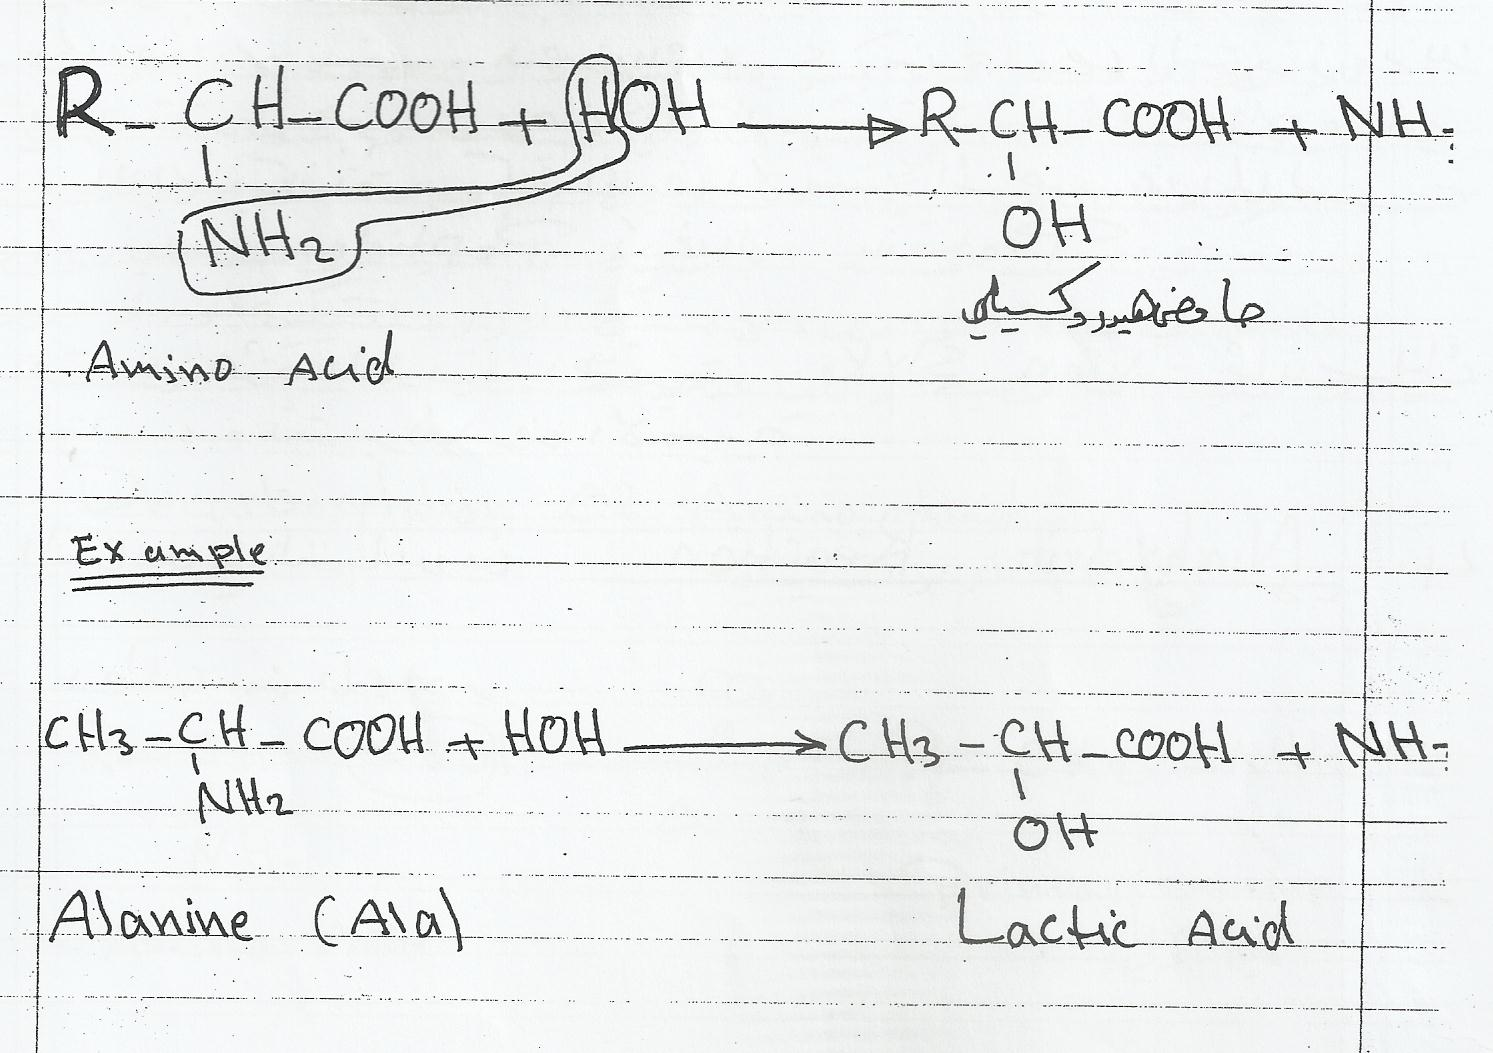 R-CH-COOH + HOH → R-CH-COOH + NH
NH2 OH
حامض هيدروكسيلي
Amino Acid
Example
CH3-CH-COOH + HOH → CH3-CH-COOH + NH
NH2 OH
Alanine (Ala) Lactic Acid